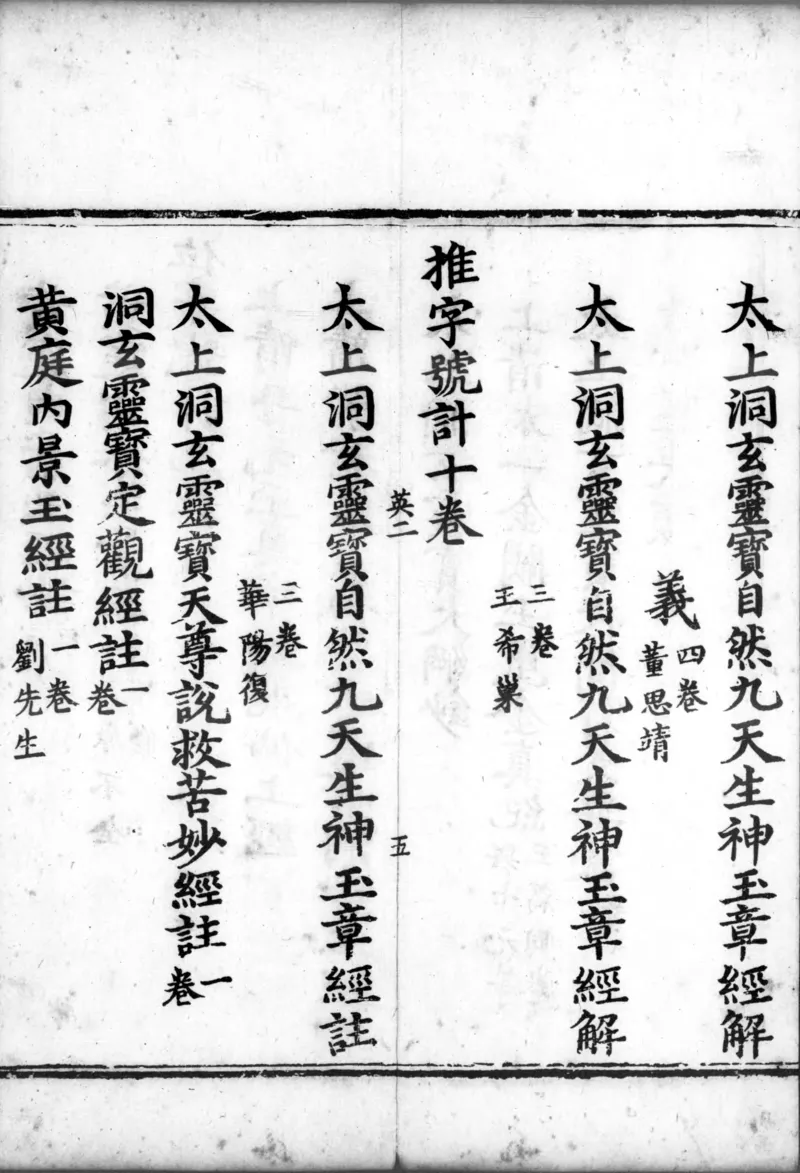 太上洞玄靈寶自然九天生神玉章經解
義四卷董思靖
太上洞玄靈寶自然九天生神玉章經解
三卷王希巢
推字號計十卷
英二 五
太上洞玄靈寶自然九天生神玉章經註
三卷華陽復
太上洞玄靈寶天尊說救苦妙經註一卷
洞玄靈寶定觀經註一卷
黃庭內景玉經註一卷劉先生